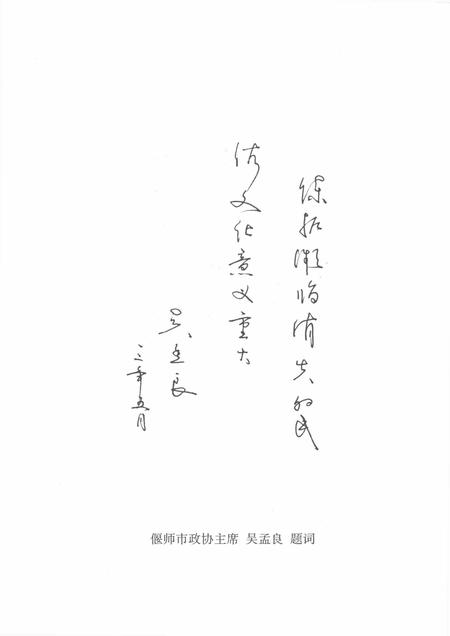 保护濒临消失的民
俗文化意义重大
吴孟良
一三年五月
偃师市政协主席 吴孟良 题词